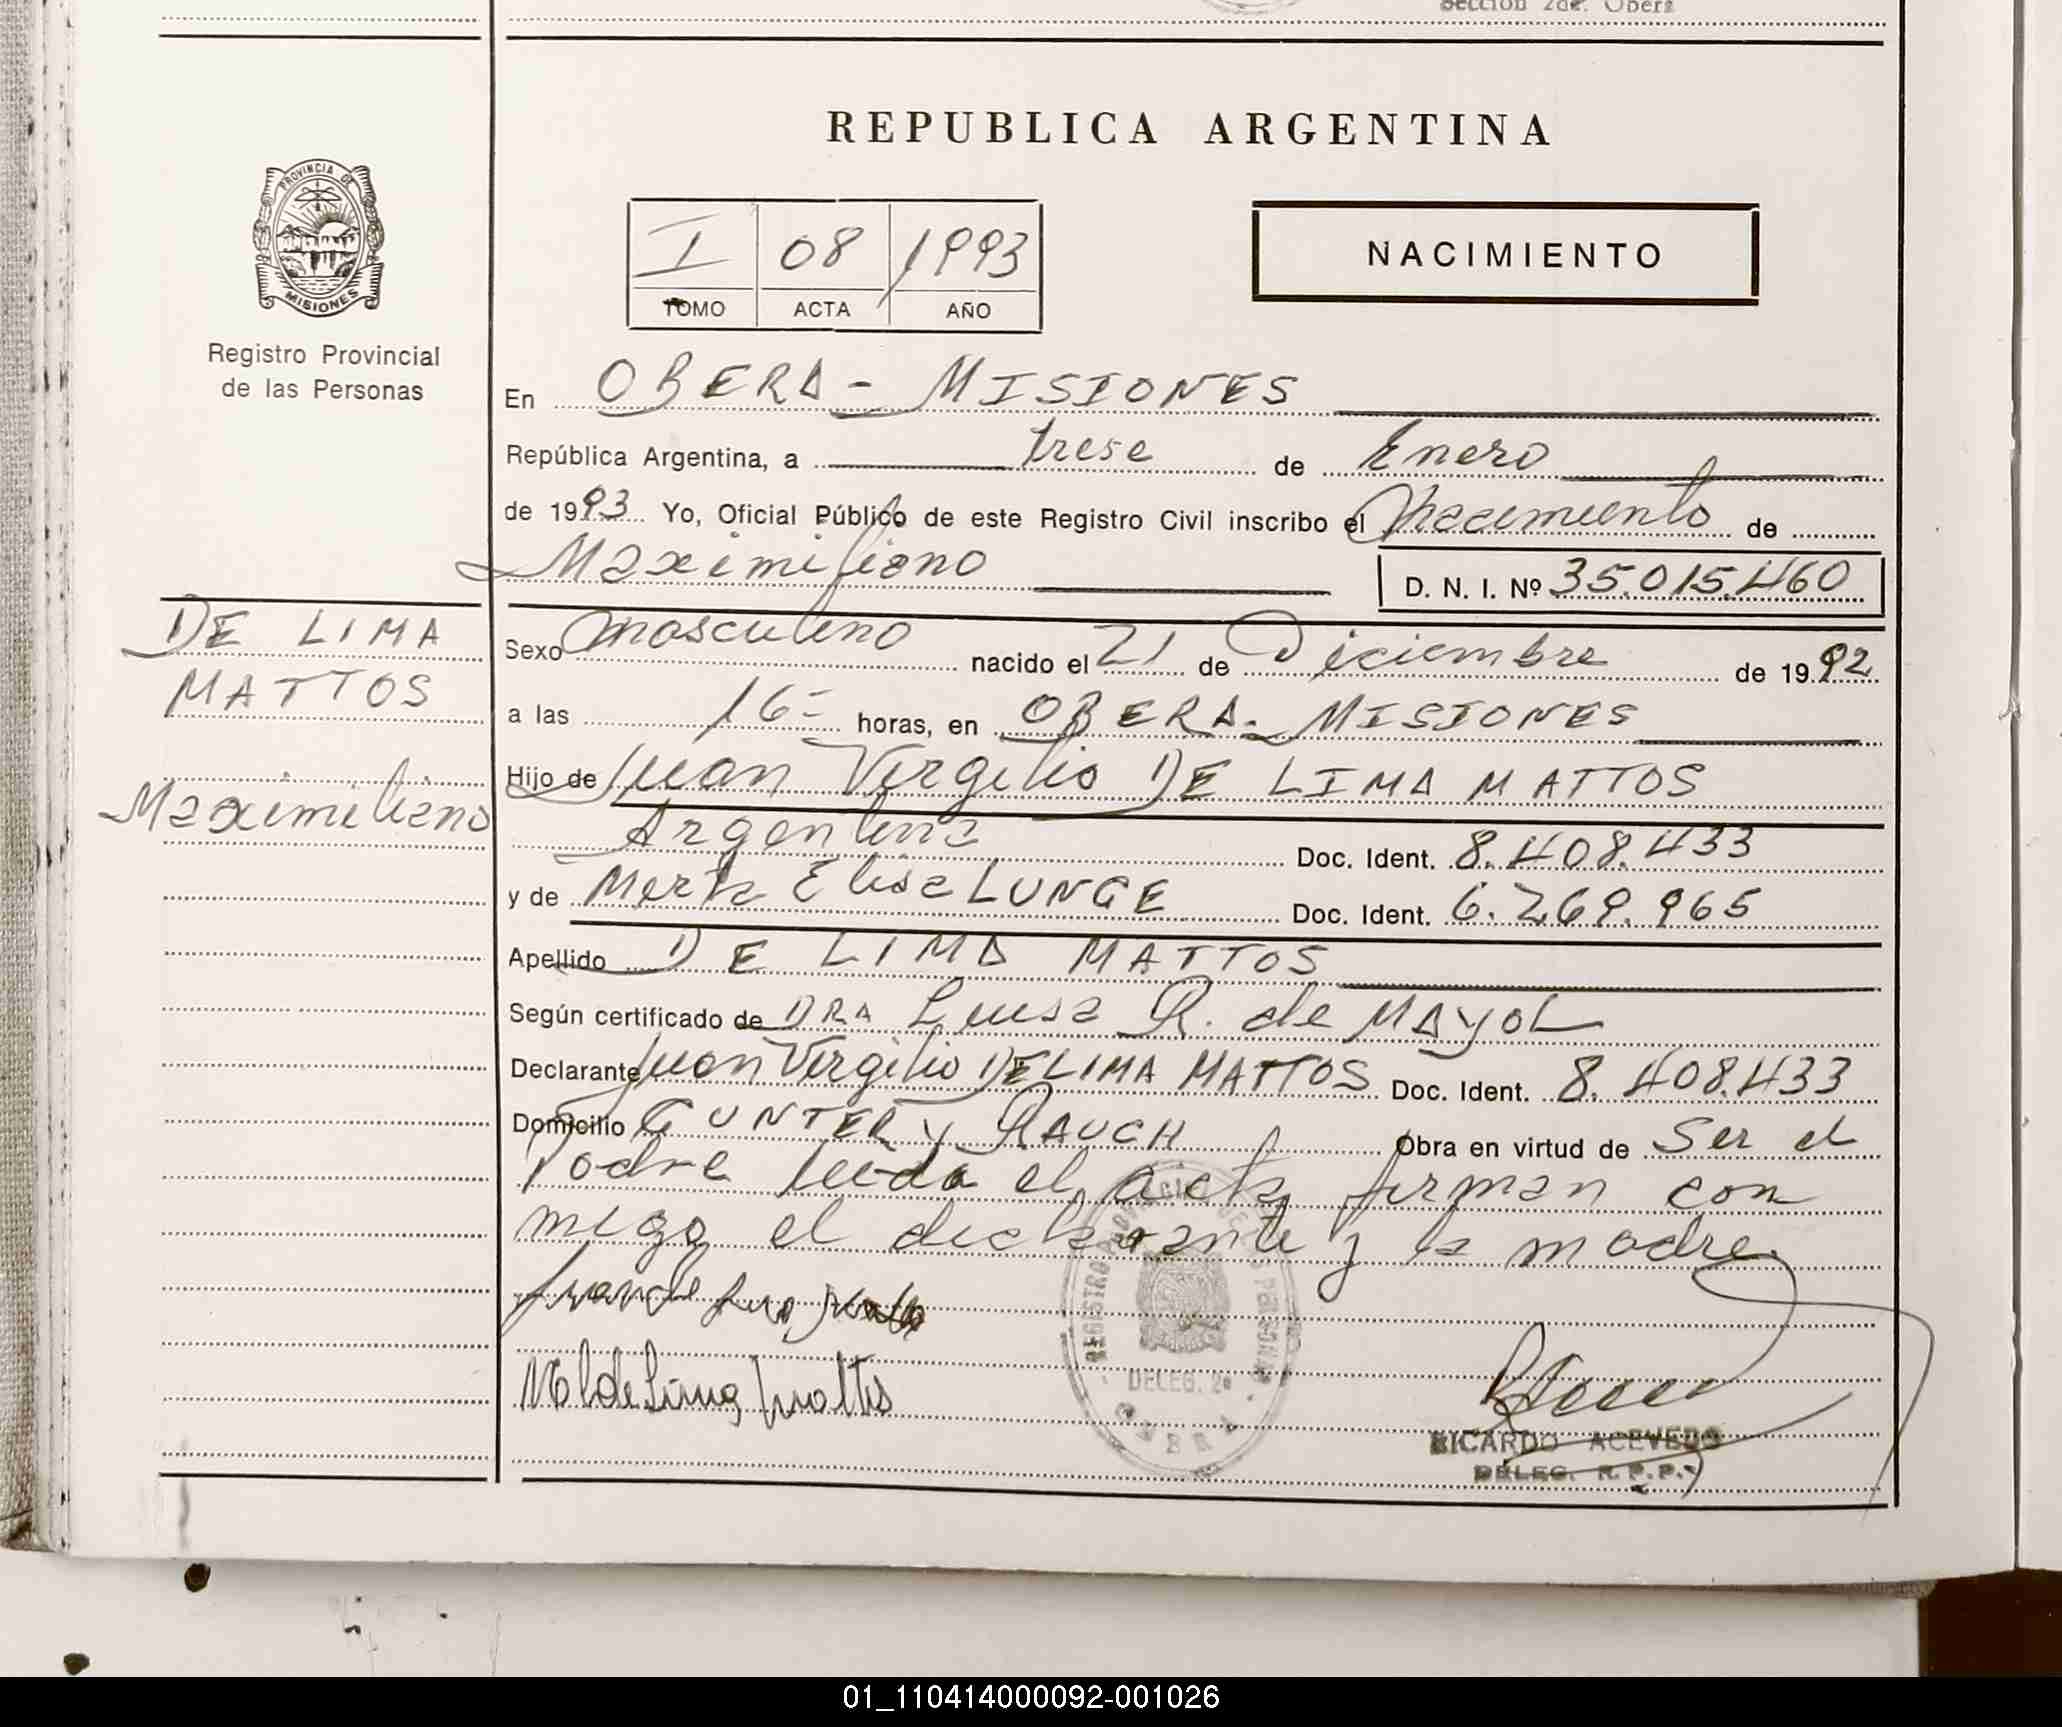 Sección 2da. Oberá
REPUBLICA ARGENTINA
PROVINCIA DE
MISIONES
Registro Provincial
de las Personas
I 08 1993
TOMO ACTA AÑO
NACIMIENTO
En OBERA - MISIONES
República Argentina, a trese de Enero
de 1993 Yo, Oficial Público de este Registro Civil inscribo el Nacimiento de
Maximiliano
D. N. I. Nº 35.015.460
DE LIMA
MATTOS
Maximiliano
Sexo masculino nacido el 21 de Diciembre de 1992
a las 16= horas, en OBERA - MISIONES
Hijo de Juan Virgilio DE LIMA MATTOS
Argentina Doc. Ident. 8.408.433
y de Mirta Elisa LUNGE Doc. Ident. 6.269.965
Apellido DE LIMA MATTOS
Según certificado de DRA Luisa R. de MAYOL
Declarante Juan Virgilio DE LIMA MATTOS Doc. Ident. 8.408.433
Domicilio GUNTER y RAUCH Obra en virtud de Ser el
Padre leida el acta firman con
migo el declarante y la madre
DELEG. 2a
RICARDO ACEVEDO
DELEG. R.P.P.
01_110414000092-001026